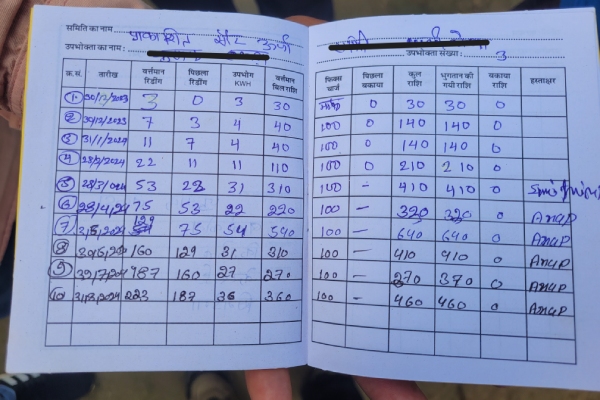 समिति का नाम : प्रकाशित सौर ऊर्जा समिति
उपभोक्ता का नाम : उपभोक्ता संख्या : 3
क्र.सं. तारीख वर्तमान रिडिंग पिछला रिडिंग उपभोग KWH वर्तमान बिल राशि फिक्स चार्ज पिछला बकाया कुल राशि भुगतान की गयी राशि बकाया राशि हस्ताक्षर
1 30/12/2023 3 0 3 30 0 30 30 0
2 30/12/2023 7 3 4 40 100 0 140 140 0
3 31/1/2024 11 7 4 40 100 0 140 140 0
4 28/2/2024 22 11 11 110 100 0 210 210 0
5 28/3/2024 53 22 31 310 100 – 410 410 0
6 28/4/24 75 53 22 220 100 – 320 320 0 Anup
7 31/5/2024 129 75 54 540 100 – 640 640 0 Anup
8 160 129 31 310 100 – 410 410 0 Anup
9 187 160 27 270 100 – 370 370 0 Anup
10 31/8/2024 223 187 36 360 100 – 460 460 0 Anup